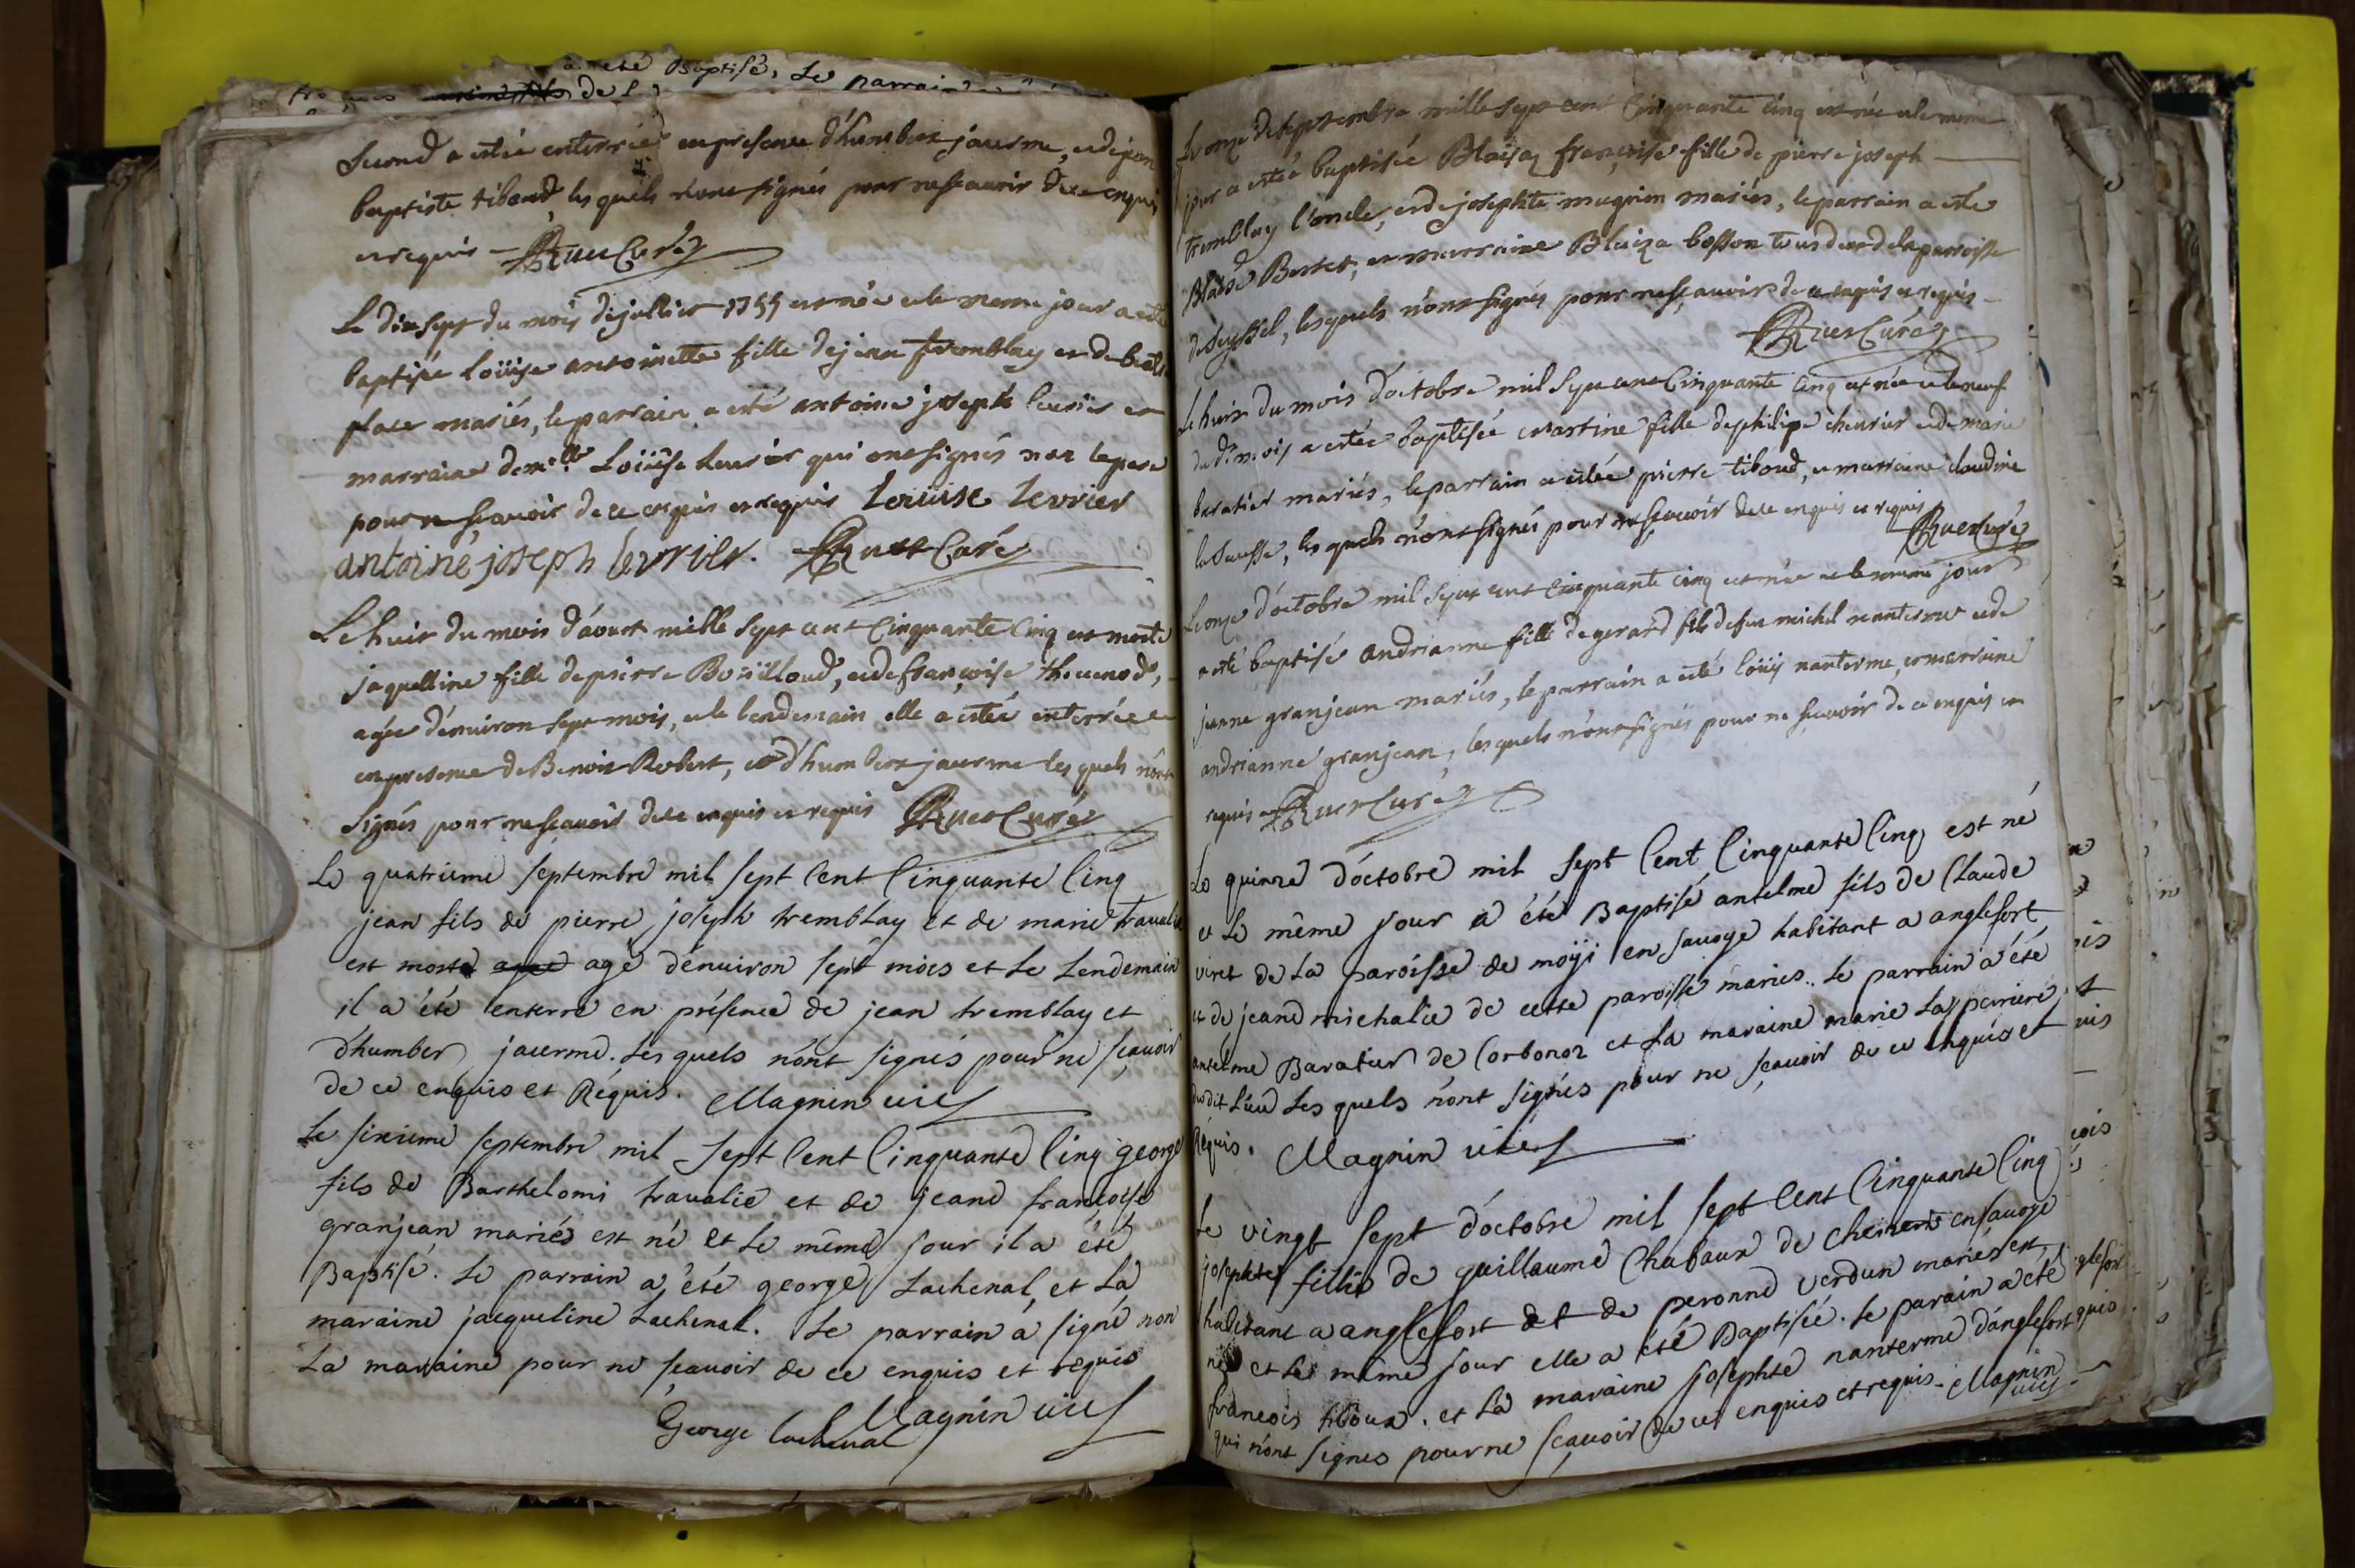 a été Baptisé, Le parrain
de
Second a estée enterrée en presence d'humbert jacerme, et de jean
baptiste tiboud, les quels n'ont signés pour ne scauoir de ce enquis
et requis - Curé
Le dix sept du mois de juillier 1755 est née et le meme jour a esté
baptisée Loüise antoinette fille de jean tremblay et de
place mariés, le parrain a esté antoine joseph leurier et
marraine dem.lle Loüise leurier qui ont signés non le pere
pour ne scauoir de ce enquis et requis Louise Levrier
antoine joseph levrier. Curé
Le huit du mois d'aoust mille sept cent Cinquante Cinq est morte
jaquelline fille de pierre Boüilloud, et de françoise theuenod,
agée d'enuiron sept mois, et le lendemain elle a estée enterrée
en presence de Benoit Robert, et d'humbert jacerme les quels n'ont
signés pour ne scauoir de ce enquis et requis Curé
Le quatrieme septembre mil sept Cent Cinquante Cinq
jean fils de pierre joseph tremblay et de marie
est morte agé d'enuiron sept mois et le Lendemain
il a été enterré en présence de jean tremblay et
d'humber jacerme. Les quels n'ont signés pour ne sçauoir
de ce enquis et Réquis. Magnin vic
Le sixieme septembre mil sept Cent Cinquante Cinq george
fils de Barthelomi traualie et de jeane francoise
granjean mariés est né et Le même jour il a été
Baptisé. Le parrain a été george Lachenal, et La
maraine jacqueline Lachenal. Le parrain a signé non
La maraine pour ne scauoir de ce enquis et requis
Magnin vic
George lachenal
Le onze de septembre mille sept cent Cinquante Cinq est née et le meme
jour a estée baptisée Blaisaz françoise fille de pierre joseph
tremblay l'oncle, et de josephte magnin mariés, le parrain a esté
Blaise Bertet, et marraine Blaiza bosson tous deux de la parroisse
de Seyssel, lesquels n'ont signés pour ne scauoir de ce enquis et requis
Curé
Le huit du mois d'octobre mil sept cent Cinquante Cinq est née et le neuf
du d.t mois a estée baptisée martine fille de philipe cheurier et de marie
baratier mariés, le parrain a estée pierre tiboud, et marraine claudine
les quels n'ont signés pour ne scauoir de ce enquis et requis
Curé
Le onze d'octobre mil sept cent Cinquante Cinq est née et le meme jour
a esté baptisé andrianne fille de gerard fils de feu michel nanterme et de
jeanne granjean mariés, le parrain a esté loüis nanterme, et marraine
andrianne granjean, les quels n'ont signés pour ne scauoir de ce enquis et
requis Curé
Le quinze d'octobre mil sept Cent Cinquante Cinq est né
et Le même jour a été Baptisé antelme fils de Claude
viret de La paroisse de moÿi en sauoye habitant a anglefort
et de jeane michalie de cette paroisse mariés. Le parrain a été
antelme Baratier de Corbonoz et La maraine marie La perriere
Les quels n'ont signés pour ne sçauoir de ce enquis et
Réquis. Magnin vic
Le vingt sept d'octobre mil sept Cent Cinquante Cinq
josephte fillie de guillaume Chabaux de en sauoye
habitant a anglefort et de peronne verdun mariés est
né et Le même jour elle a été Baptisée. Le parain a été
francois tiboux. et La maraine josephte nanterme d'anglefort
qui n'ont signés pour ne sçauoir de ce enquis et requis. Magnin
vic